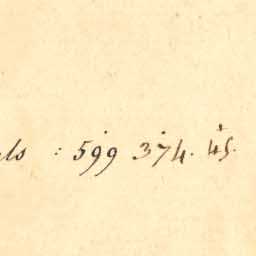 als : 599 374. 45.